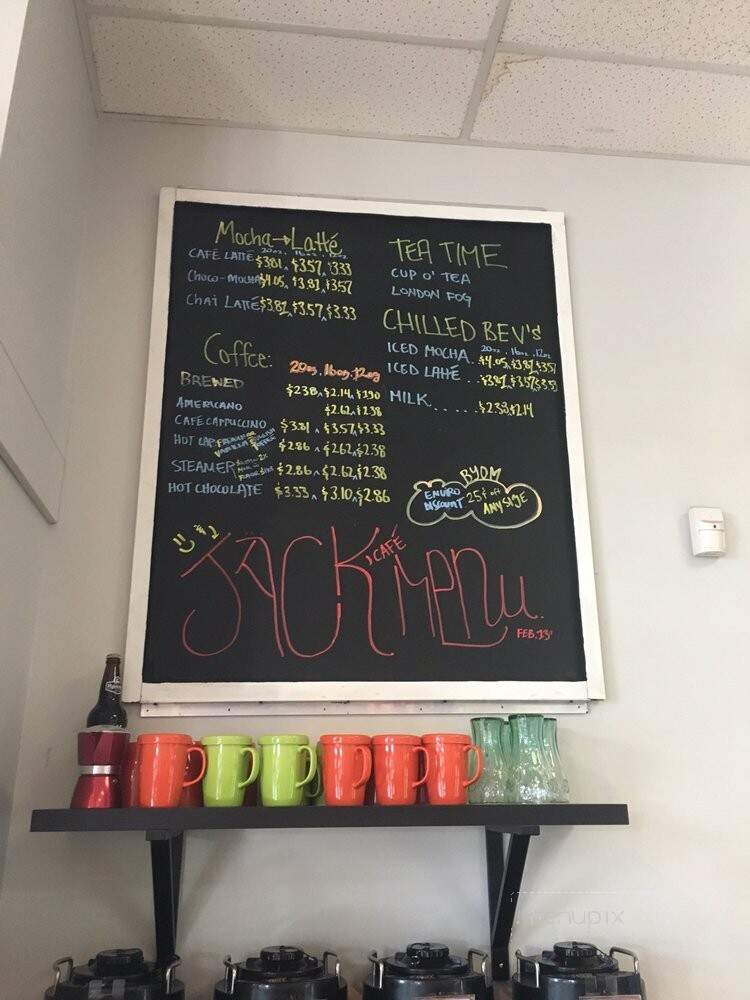 Mocha→Latté
20oz. 16oz. 12oz
CAFÉ LATTÉ $3.81, $3.57, $3.33
Choco-MOCHA $4.05, $3.81, $3.57
Chai LATTÉ $3.81, $3.57, $3.33
Coffee: 20oz, 16oz, 12oz
BREWED $2.38, $2.14, $1.90
AMERICANO $2.62, $2.38
CAFE CAPPUCCINO $3.81, $3.57, $3.33
HOT CAP: FRENCH VANILLA $2.86, $2.62, $2.38
STEAMER $2.86, $2.62, $2.38
HOT CHOCOLATE $3.33, $3.10, $2.86
TEA TIME
CUP O' TEA
LONDON FOG
CHILLED BEV'S
20oz. 16oz. 12oz
ICED MOCHA.. $4.05, $3.81, $3.57
ICED LATTÉ .. $3.81, $3.57, $3.33
MILK..... $2.38, $2.14
BYOM
ENVIRO DISCOUNT 25¢ off ANY SIZE
JACK'S CAFÉ MENU.
FEB. 13'
menupix